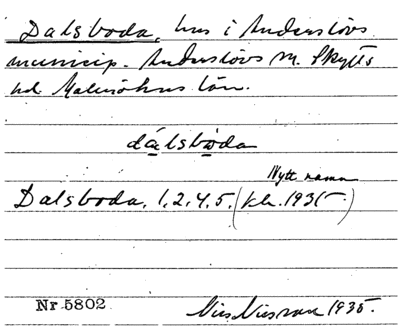 Dalsboda, hus i Anderslövs
municip. Anderslövs sn. Skytts
hd Malmöhus län.
dálsbωda
Nytt namn
Dalsboda, 1, 2, 4, 5. (kh. 1935)
Nr 5802 Nils Nilsson 1935.